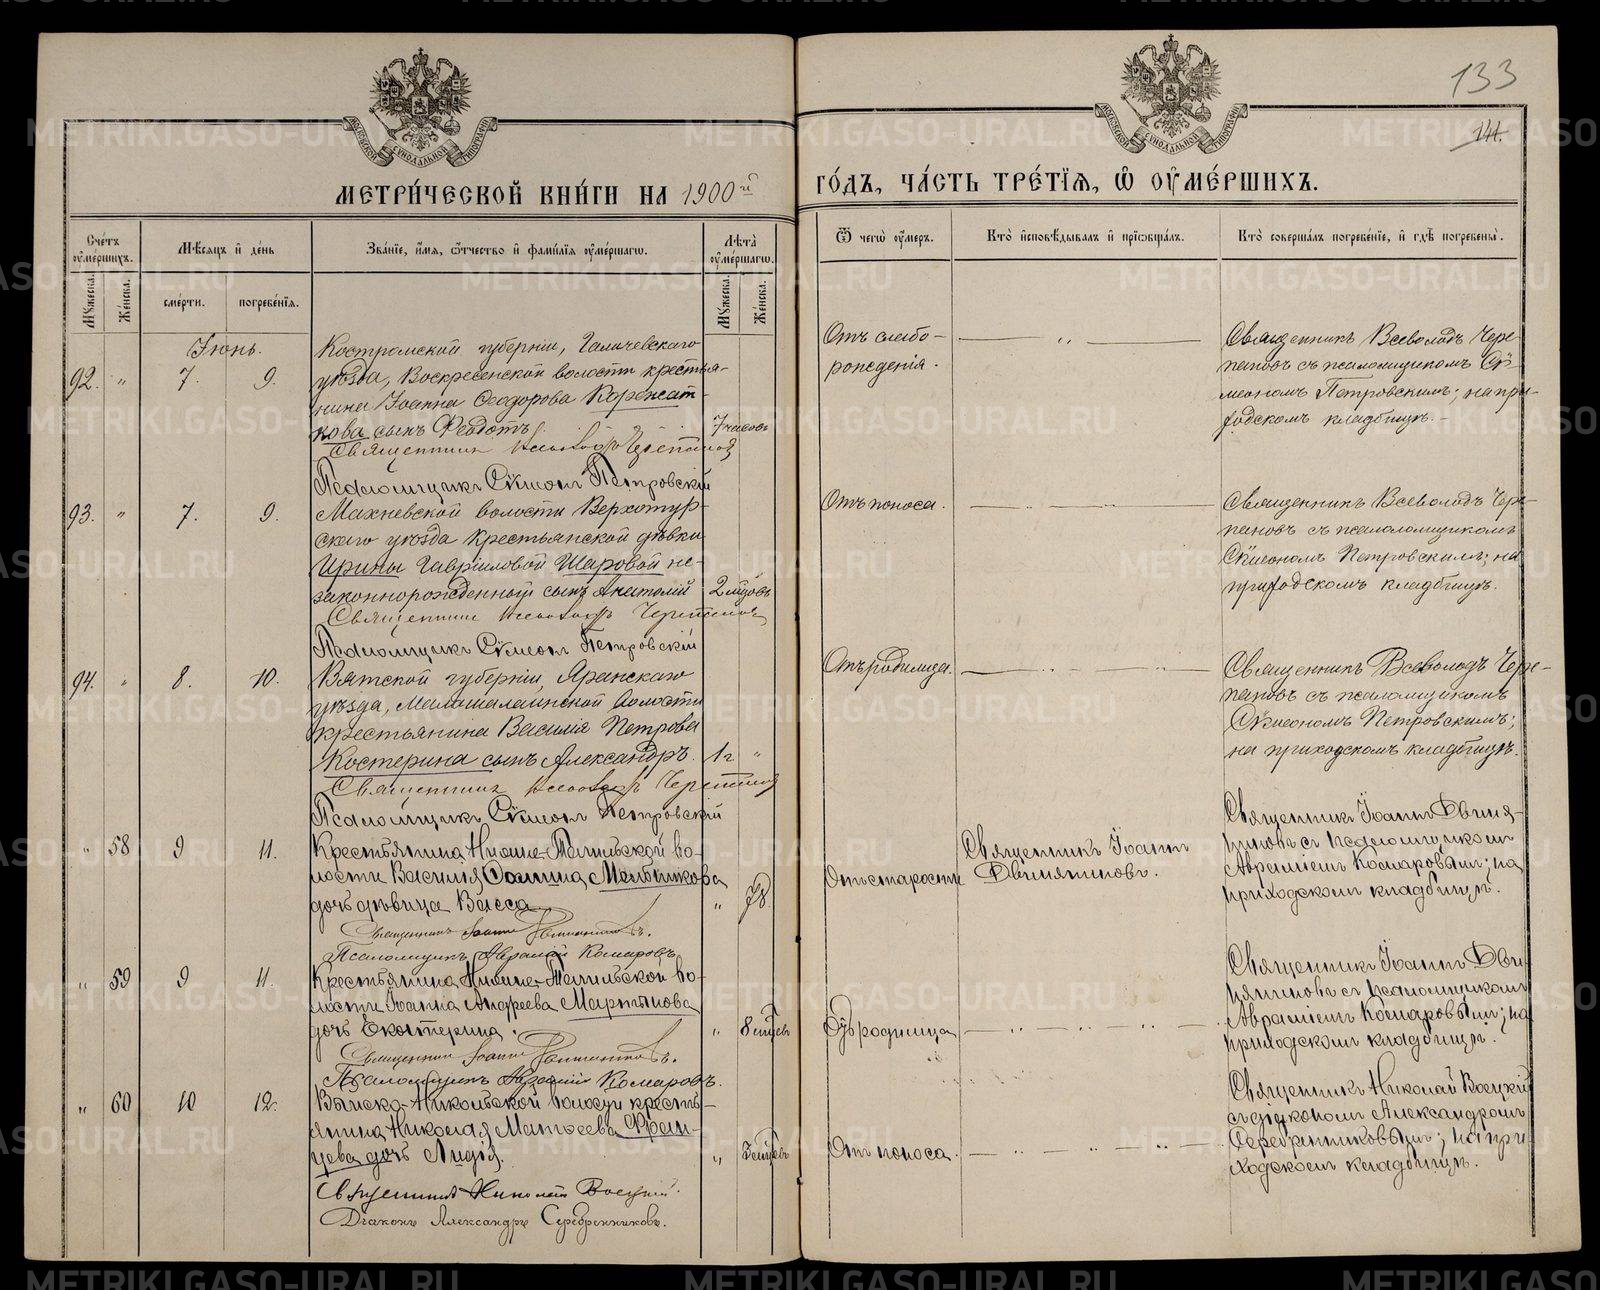 133
144.
МОСКОВСКОЙ СѴНОДАЛЬНОЙ ТИПОГРАФІИ
МОСКОВСКОЙ СѴНОДАЛЬНОЙ ТИПОГРАФІИ
МЕТРИ́ЧЕСКОЙ КНИ́ГИ НА 1900й
ГО́ДЪ, ЧА́СТЬ ТРЕ́ТІѦ, Ѡ ОУМЕ́РШИХЪ.
Сче́тъ оуме́ршихъ.
Му́жеска.
Же́нска.
Мѣ́сяцъ и де́нь
сме́рти.
погребе́нїя.
Зва́нїе, и́мя, ѻ́тчество и фами́лїя оуме́ршагѡ.
Лѣ́та оуме́ршагѡ.
Му́жеска.
Же́нска.
Ѿ чегѡ̀ оу́меръ.
Кто̀ исповѣ́дывалъ и прїѡбща́лъ.
Кто̀ соверша́лъ погребе́нїе, и гдѣ̀ погребены̀.
Іюнь.
92. " 7. 9.
Костромской губерніи, Галичевскаго
уѣзда, Воскресенской волости крестья-
нина Іоанна Ѳеодорова Коржат-
кова сынъ Ѳеодотъ
7 часовъ
Священникъ Всеволодъ Черепановъ
Псаломщикъ Сѵмеонъ Петровскій
Отъ слабо-
рожденія.
Священникъ Всеволодъ Чере-
пановъ съ псаломщикомъ Сѵ-
меономъ Петровскимъ; на при-
ходскомъ кладбищѣ.
93. " 7. 9.
Махневской волости Верхотур-
скаго уѣзда крестьянской дѣвки
Ирины Гавріиловой Шаровой не-
законнорожденный сынъ Анатолій
Священникъ Всеволодъ Черепановъ
Псаломщикъ Сѵмеонъ Петровскій
Отъ поноса.
Священникъ Всеволодъ Чере-
пановъ съ псаломщикомъ
Сѵмеономъ Петровскимъ; на
приходскомъ кладбищѣ.
94. " 8. 10.
Вятской губерніи, Яранскаго
уѣзда, волости
крестьянина Василія Петрова
Костерина сынъ Александръ.
1 г. "
Священникъ Всеволодъ Черепановъ
Псаломщикъ Сѵмеонъ Петровскій
Отъ родимца.
Священникъ Всеволодъ Чере-
пановъ съ псаломщикомъ
Сѵмеономъ Петровскимъ;
на приходскомъ кладбищѣ.
" 58 9 11.
Крестьянина Нижне-Тагильской во-
лости Василія Ѳомина Мельникова
дочь дѣвица Васса
" 78
Священникъ Іоаннъ Двиняниновъ.
Псаломщикъ Авраамій Комаровъ
Отъ старости
Священникъ Іоаннъ
Двиняниновъ.
Священникъ Іоаннъ Двиня-
ниновъ съ псаломщикомъ
Авраміемъ Комаровымъ; на
приходскомъ кладбищѣ.
" 59 9 11.
Крестьянина Нижне-Тагильской во-
лости Іоанна Андреева Мартьянова
дочь Екатерина.
" 8 мцевъ
Священникъ Іоаннъ Двиняниновъ.
Псаломщикъ Авраамій Комаровъ.
Отъ родимца
Священникъ Іоаннъ Дви-
няниновъ съ псаломщикомъ
Авраміемъ Комаровымъ; на
приходскомъ кладбищѣ.
" 60 10 12.
Выйско-Никольской волости кресть-
янина Николая Матѳеева
дочь Лидія.
Священникъ Николай Воецкій.
Діаконъ Александръ Серебренниковъ.
Отъ поноса.
Священникъ Николай Воецкій
съ діакономъ Александромъ
Серебренниковымъ; на при-
ходскомъ кладбищѣ.
METRIKI.GASO-URAL.RU